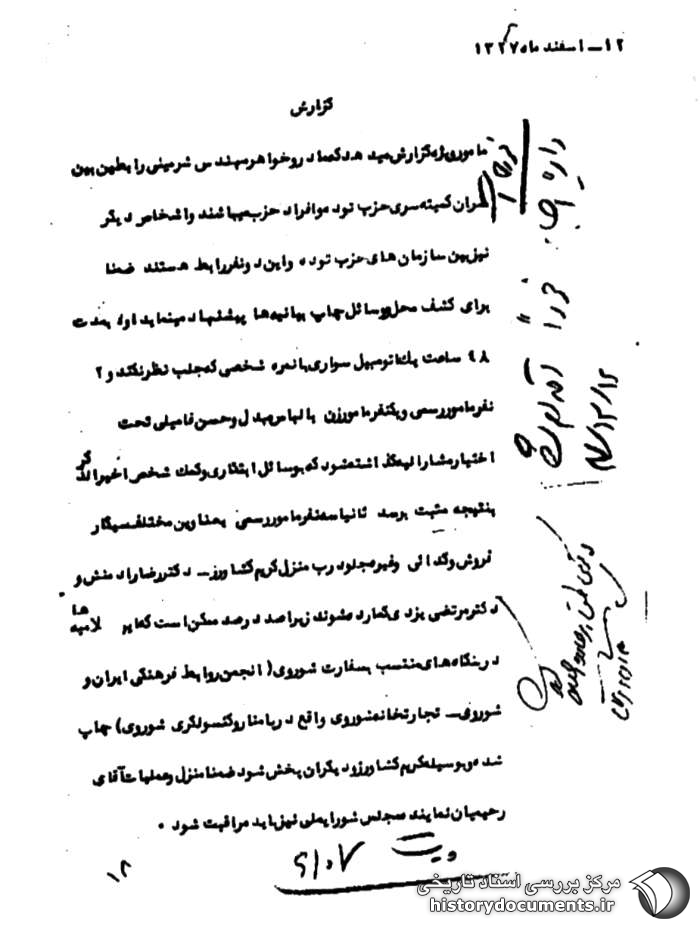 ۱۲ــ اسفند ماه ۱۳۲۷
گزارش
مامور ویژه گزارش میدهد که مادر و خواهر مهندس شرمینی رابطین بین
سران کمیته سری حزب توده و افراد حزب میباشند و اشخاص دیگر
نیز بین سازمان های حزب توده و این دو نفر رابط هستند ضمنا
برای کشف محل و وسائل چاپ بیانیه ها پیشنهاد مینماید اولا بمدت
۴۸ ساعت یک اتومبیل سواری با نمره شخصی که جلب نظر نکند و ۲
نفر مامور رسمی و یکنفر مامور زن با لباس مبدل و حسن فامیلی تحت
اختیار مشارالیه گذاشته شود که بوسائل ابتکاری و کمک شخص اخیرالذکر
بنتیجه مثبت برسد ثانیا سه نفر مامور رسمی بعناوین مختلف سیگار
فروش و گدائی و غیره جلو درب منزل کریم کشاورز ــ دکتر رضا رادمنش و
دکتر مرتضی یزدی گمارده شوند زیرا صد درصد ممکن است که این اعلامیه ها
در بنگاه های منتسب بسفارت شوروی (انجمن روابط فرهنگی ایران و
شوروی ــ تجارتخانه شوروی واقع در بامنار و کنسولگری شوروی) چاپ
شده و بوسیله کریم کشاورز و دیگران پخش شود ضمنا منزل و عملیات آقای
رحیمیان نماینده مجلس شورایملی نیز باید مراقبت شود ۰
دایره
فورا اقدام
مرکز بررسی اسناد تاریخی
historydocuments.ir